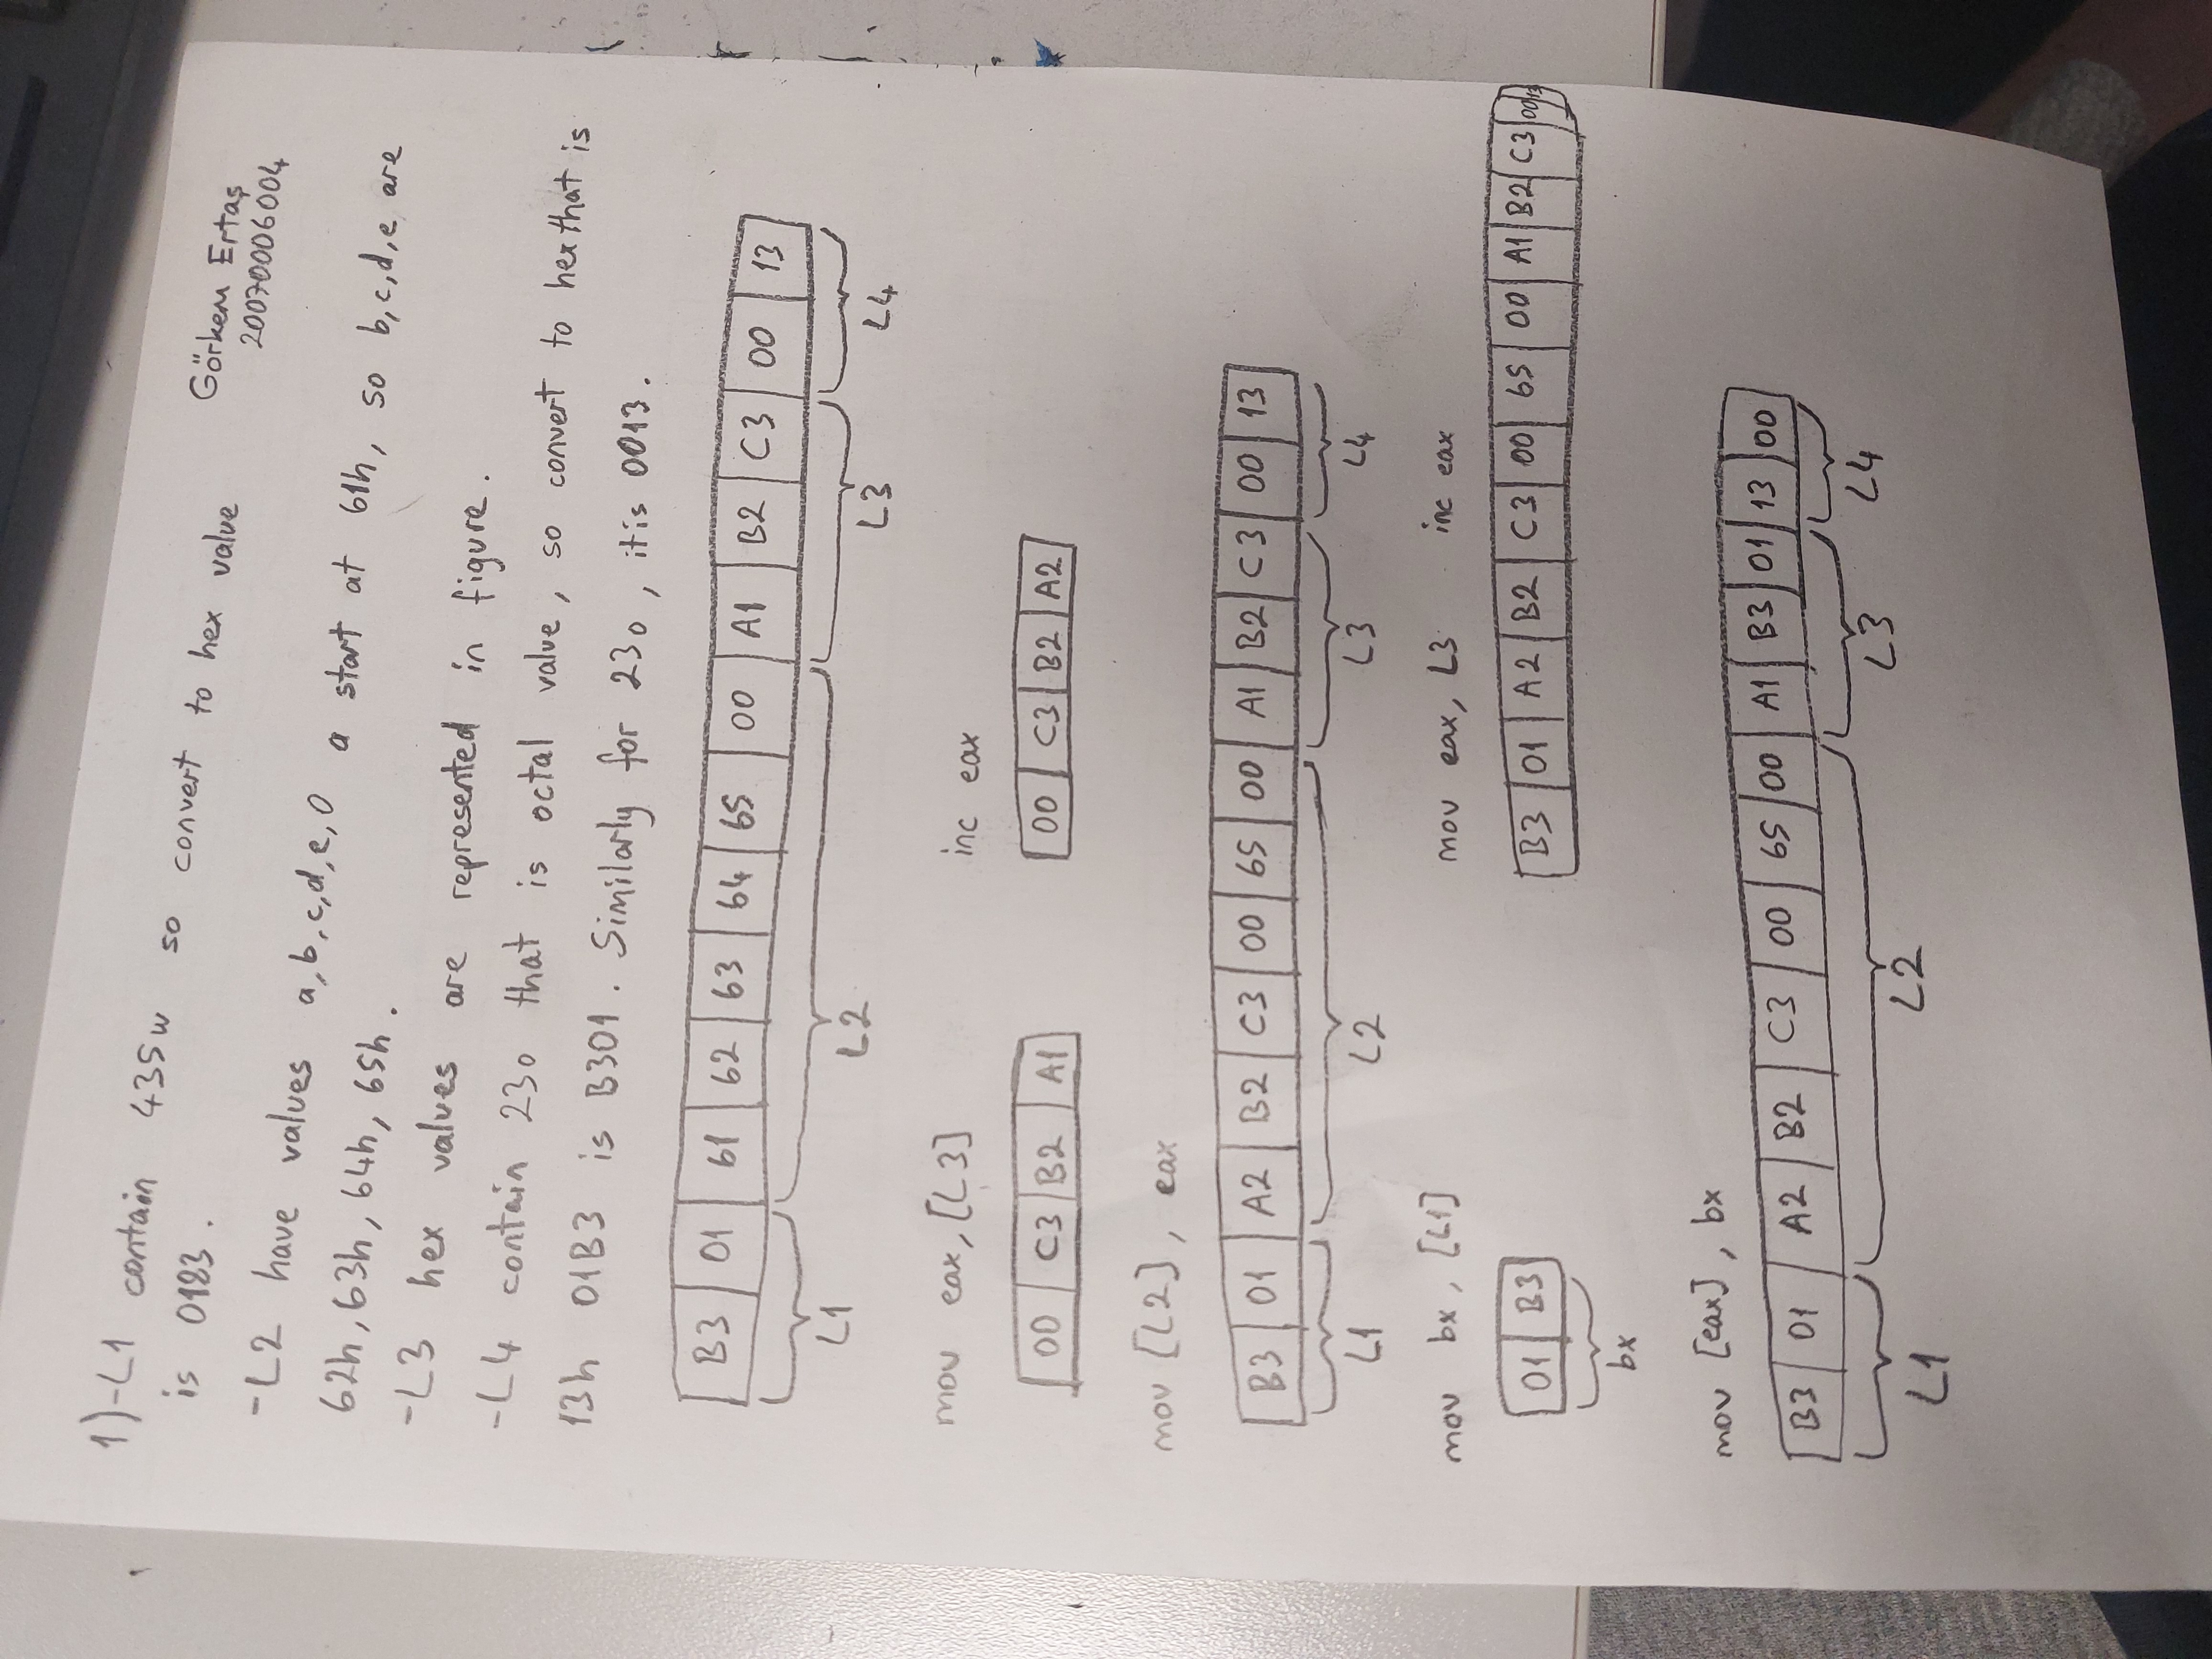 1)-L1 contain 435w so convert to hex value
is 0183.
Görkem Ertaş
20070006004
-L2 have values a,b,c,d,e,0 a start at 61h, so b,c,d,e are
62h, 63h, 64h, 65h.
-L3 hex values are represented in figure.
-L4 contain 23o that is octal value, so convert to hex that is
13h 01B3 is B301. Similarly for 23o, it is 0013.
B3 01 61 62 63 64 65 00 A1 B2 C3 00 13
L1 L2 L3 L4
mov eax, [L3] inc eax
00 C3 B2 A1 00 C3 B2 A2
mov [L2], eax
B3 01 A2 B2 C3 00 65 00 A1 B2 C3 00 13
L1 L2 L3 L4
mov bx, [L1] mov eax, L3 inc eax
01 B3 B3 01 A2 B2 C3 00 65 00 A1 B2 C3 00 13
bx
mov [eax], bx
B3 01 A2 B2 C3 00 65 00 A1 B3 01 13 00
L1 L2 L3 L4